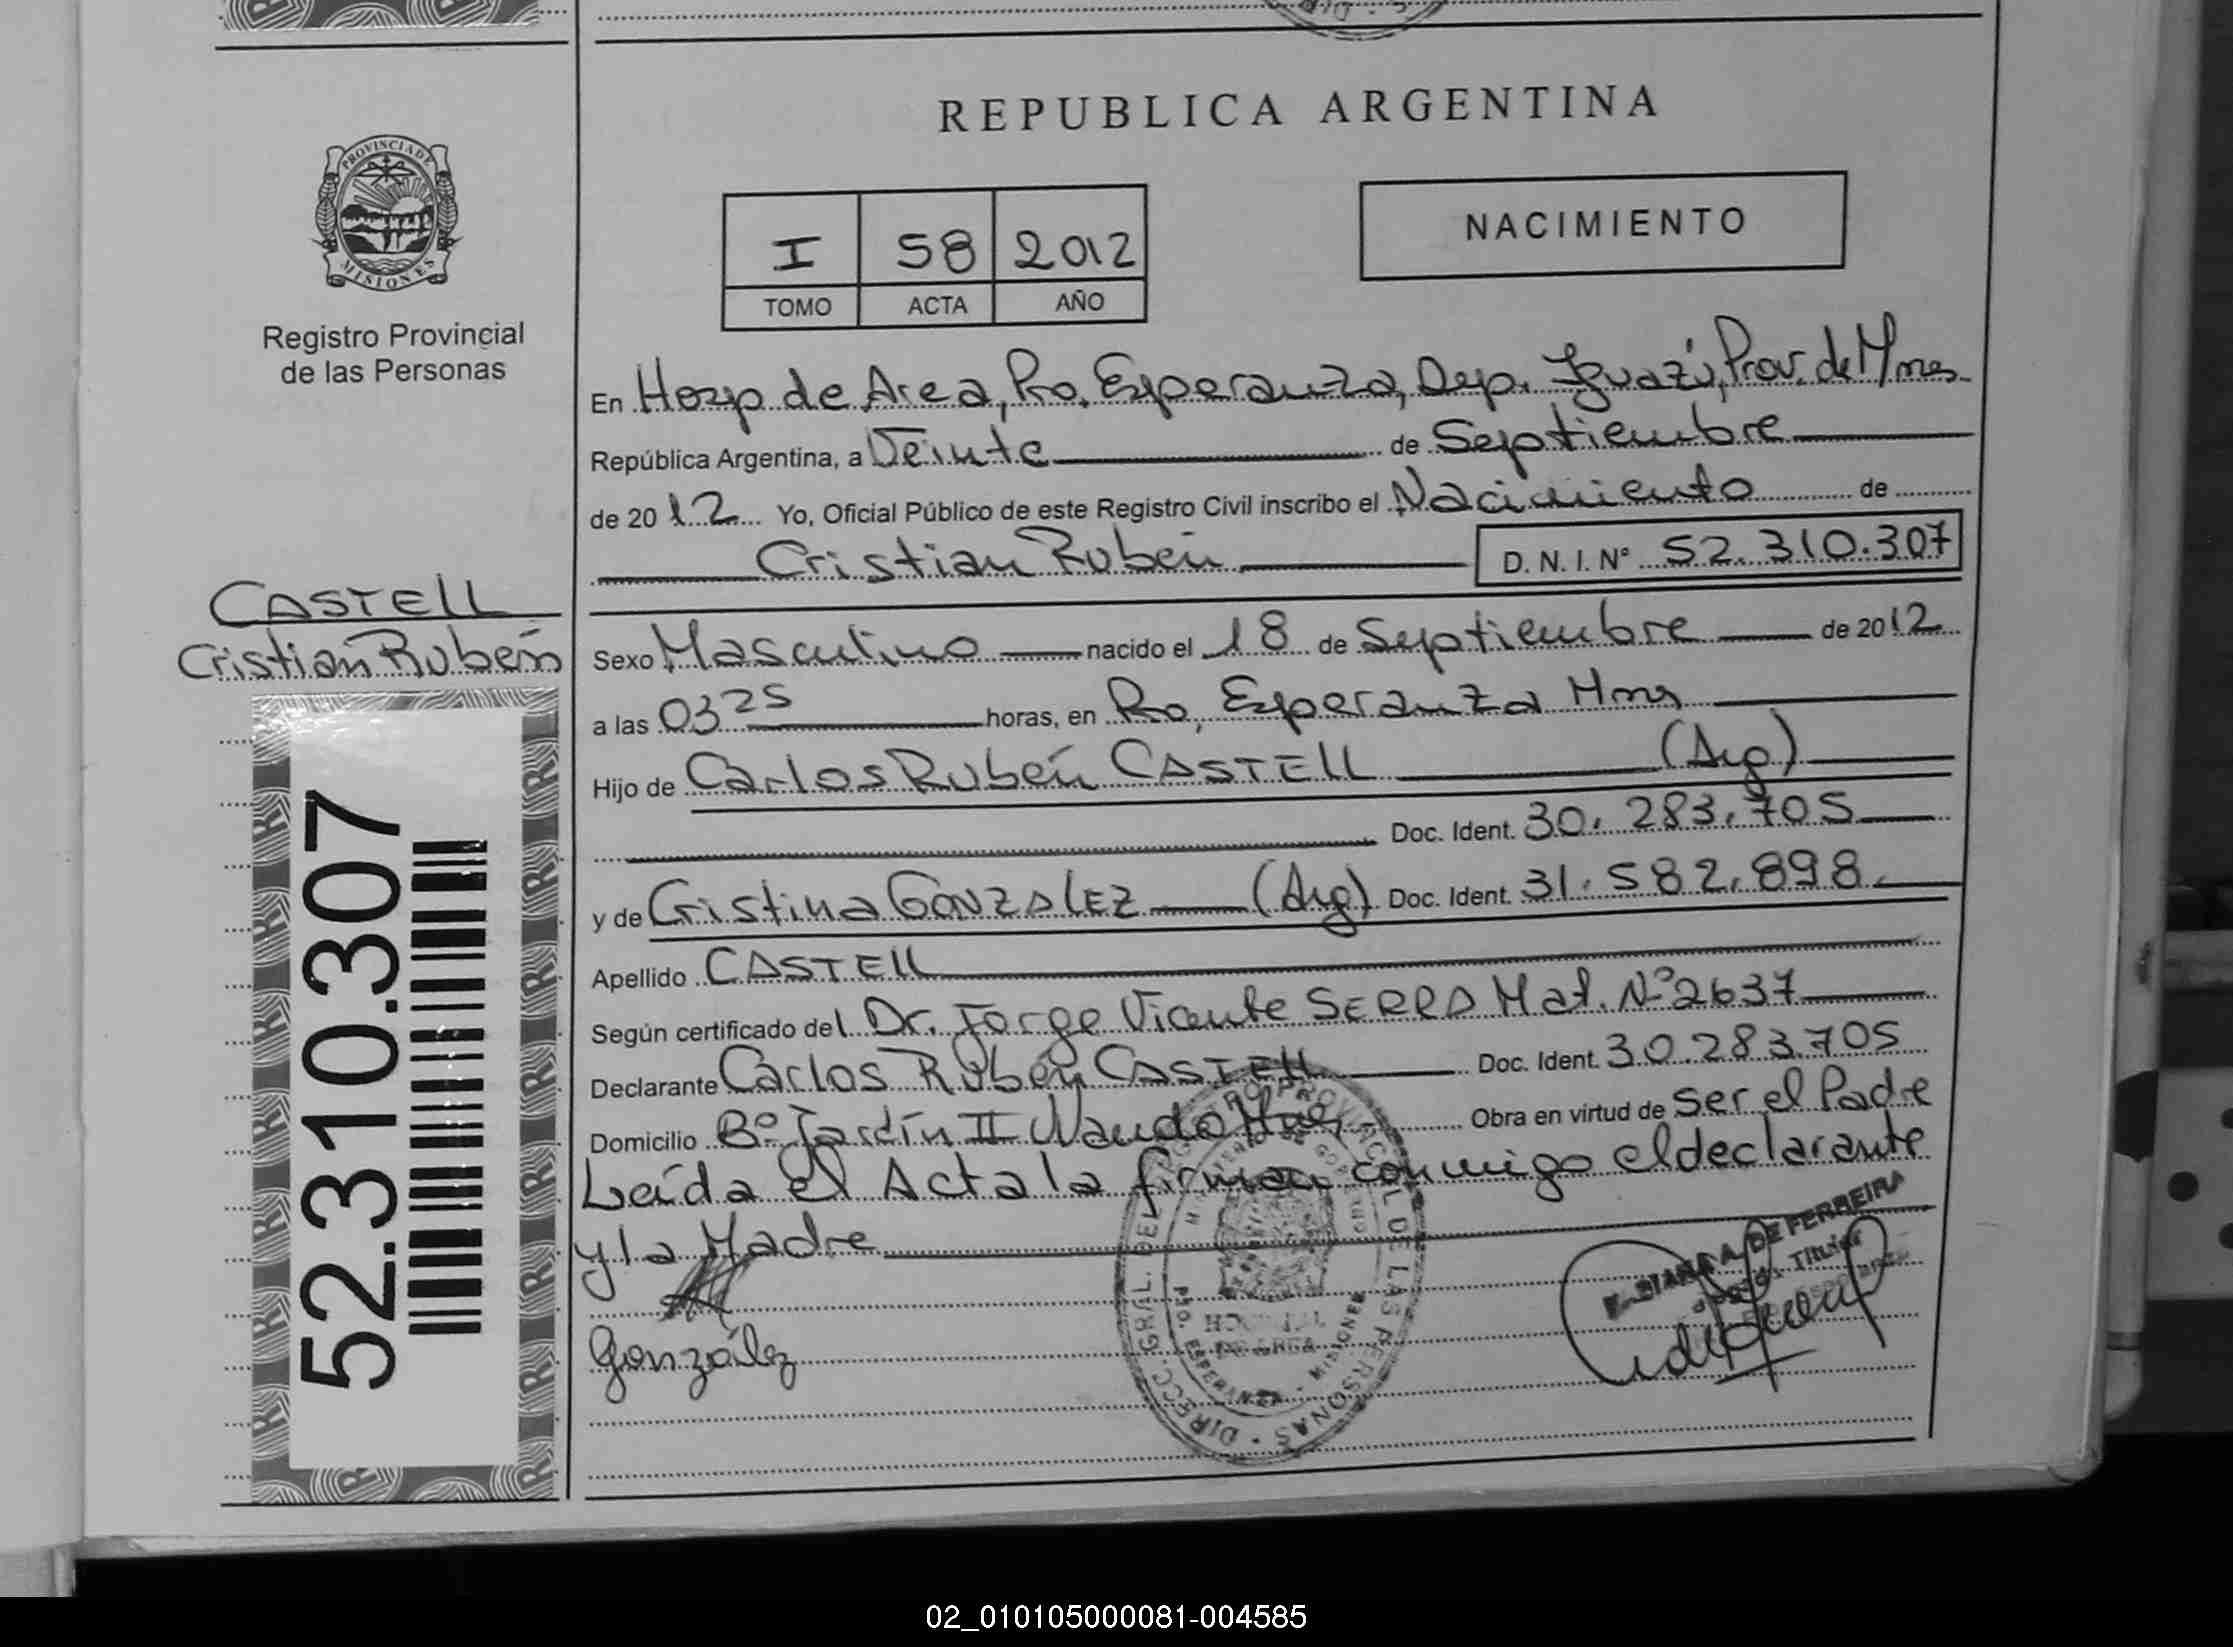 REPUBLICA ARGENTINA
PROVINCIA DE
MISIONES
Registro Provincial
de las Personas
I 58 2012
TOMO ACTA AÑO
NACIMIENTO
En Hosp de Area, Pto. Esperanza, Dep. Iguazú, Prov. de Mnes
República Argentina, a Veinte de Septiembre
de 2012 Yo, Oficial Público de este Registro Civil inscribo el Nacimiento de
Cristian Rubén D. N. I. N° 52.310.307
CASTELL
Cristian Rubén
52.310.307
Sexo Masculino nacido el 18 de Septiembre de 2012
a las 03 25 horas, en Pto, Esperanza Mnes
Hijo de Carlos Rubén CASTELL (Arg)
Doc. Ident. 30.283.705
y de Cristina GONZALEZ (Arg) Doc. Ident. 31.582.898.
Apellido CASTELL
Según certificado del Dr. Jorge Vicente SERRA Mat. N° 2637
Declarante Carlos Rubén CASTELL Doc. Ident. 30.283.705
Domicilio B° Jardín II Wanda Mnes Obra en virtud de ser el Padre
Leída el Acta la firman conmigo el declarante
y la Madre
González
DIRECC. GRAL. DEL REGISTRO PROVINCIAL DE LAS PERSONAS
HOSPITAL
DE AREA
PTO. ESPERANZA - MISIONES
A. DE FERREIRA
Titular
02_010105000081-004585